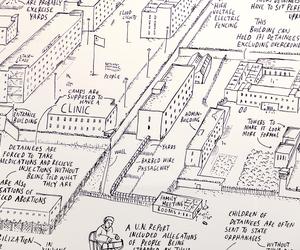 ARE PROBABLY
EXERCISE
YARDS
FLOOD
LIGHTS
HIGH
VOLTAGE
ELECTRIC
FENCING
DETAINEES
HAVE TO
THIS
BUILDING CAN
HOLD
DETAINEES
EXCLUDING OVERCROWDING
PEOPLE
CAMPS ARE
SUPPOSED TO
HAVE A
CLINIC
ENTRANCE
BUILDING
ADMIN
BUILDING
TOWERS TO
MAKE IT LOOK
MORE
FORMAL
DETAINEES ARE
FORCED TO TAKE
MEDICATIONS AND RECEIVE
INJECTIONS WITHOUT
BEING TOLD WHAT
THEY ARE
WALL
YARDS
BARBED WIRE
PASSAGEWAY
ARE ALSO
ALLEGATIONS OF
FORCED ABORTIONS
FAMILY
MEETING
ROOMS
STERILIZATION IN
A U.N. REPORT
INCLUDED ALLEGATIONS
OF PEOPLE BEING
CHILDREN OF
DETAINEES ARE OFTEN
SENT TO STATE
ORPHANAGES
WITHOUT